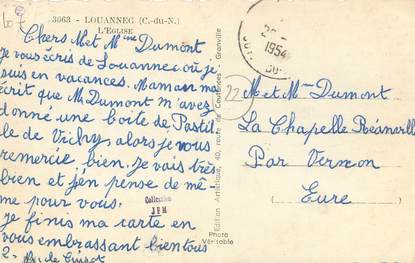 3063 - LOUANNEC (C.-du-N.)
L'EGLISE
Chers M et Mme Dumont
je vous écris de Louannec où je
suis en vacances. Maman m'a
écrit que M. Dumont m'avez
donné une boite de Pastil
le de Vichy, alors je vous
remercie bien. Je vais très
bien et j'en pense de mê
me pour vous.
je finis ma carte en
vous embrassant bien tous
2-
Edition Artistique, 40, route de Coutances - Granville
Collection
JFM
Photo
Véritable
1954
22
M et Mme Dumont
La Chapelle Réanville
Par Vernon
Eure